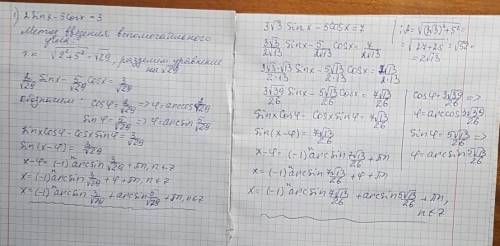 1) 2sinx-5cosx=3
Метод введения вспомогательного
угла:
r = √(2²+5²) = √29, разделим уравнение
на √29
2/√29 sinx - 5/√29 cosx = 3/√29
обозначим: cosφ = 2/√29 => φ=arccos 2/√29
sinφ = 5/√29 => φ=arcsin 5/√29
sinxcosφ - cosxsinφ = 3/√29
sin(x-φ) = 3/√29
x-φ = (-1)ⁿ arcsin 3/√29 + πn, n∈Z
x = (-1)ⁿ arcsin 3/√29 + φ + πn, n∈Z
x = (-1)ⁿ arcsin 3/√29 + arcsin 5/√29 + πn, n∈Z
3√3 sinx - 5cosx = 7
3√3/2√13 sinx - 5/2√13 cosx = 7/2√13
3√3·√13/2·13 sinx - 5√13/2·13 cosx = 7√13/2·13
3√39/26 sinx - 5√13/26 cosx = 7√13/26
sinxcosφ - cosxsinφ = 7√13/26
sin(x-φ) = 7√13/26
x-φ = (-1)ⁿ arcsin 7√13/26 + πn
x = (-1)ⁿ arcsin 7√13/26 + φ + πn
x = (-1)ⁿ arcsin 7√13/26 + arcsin 5√13/26 + πn,
n∈Z
r = √((3√3)²+5²) =
= √(27+25) = √52 =
= 2√13
cosφ = 3√39/26 =>
φ = arccos 3√39/26
sinφ = 5√13/26 =>
φ = arcsin 5√13/26